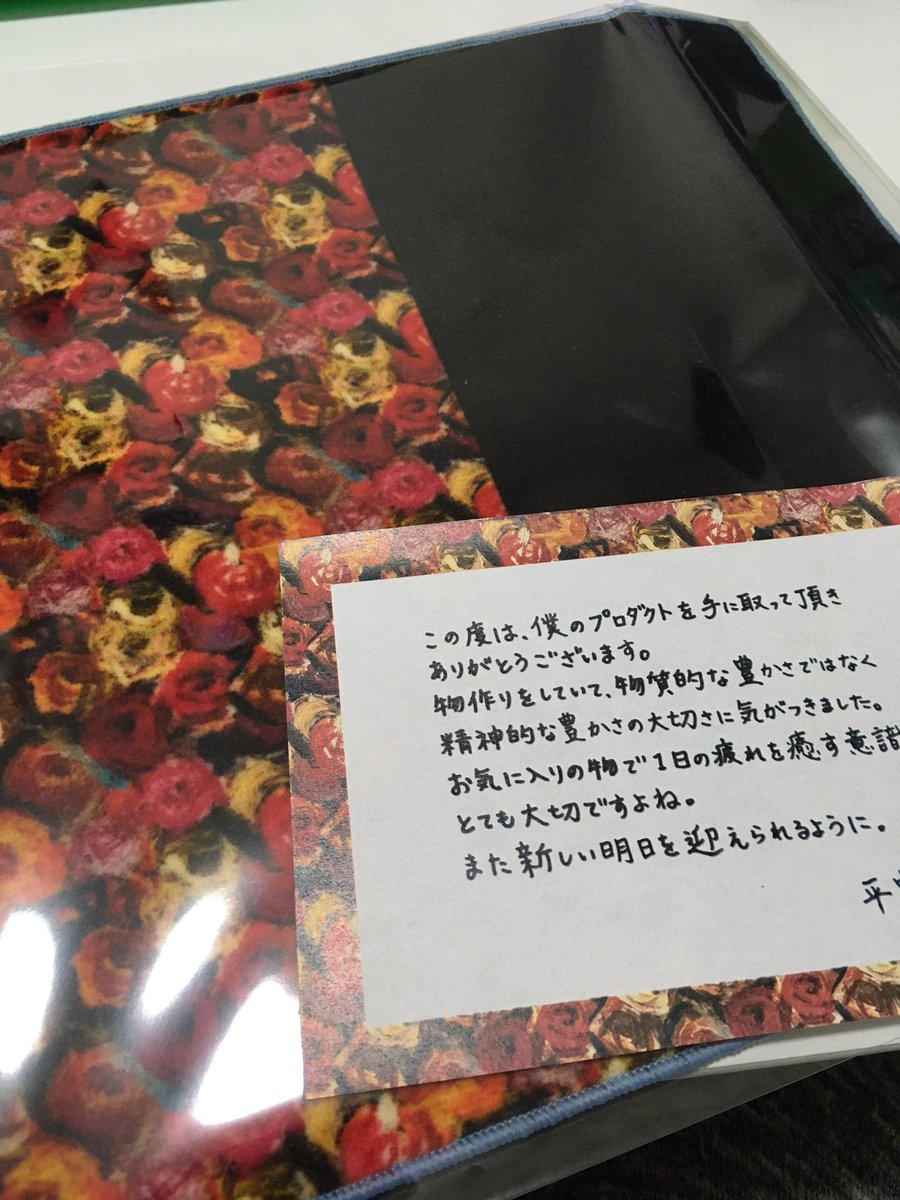 この度は、僕のプロダクトを手に取って頂き
ありがとうございます。
物作りをしていて、物質的な豊かさではなく
精神的な豊かさの大切さに気がつきました。
お気に入りの物で1日の疲れを癒す意識
とても大切ですよね。
また新しい明日を迎えられるように。
平